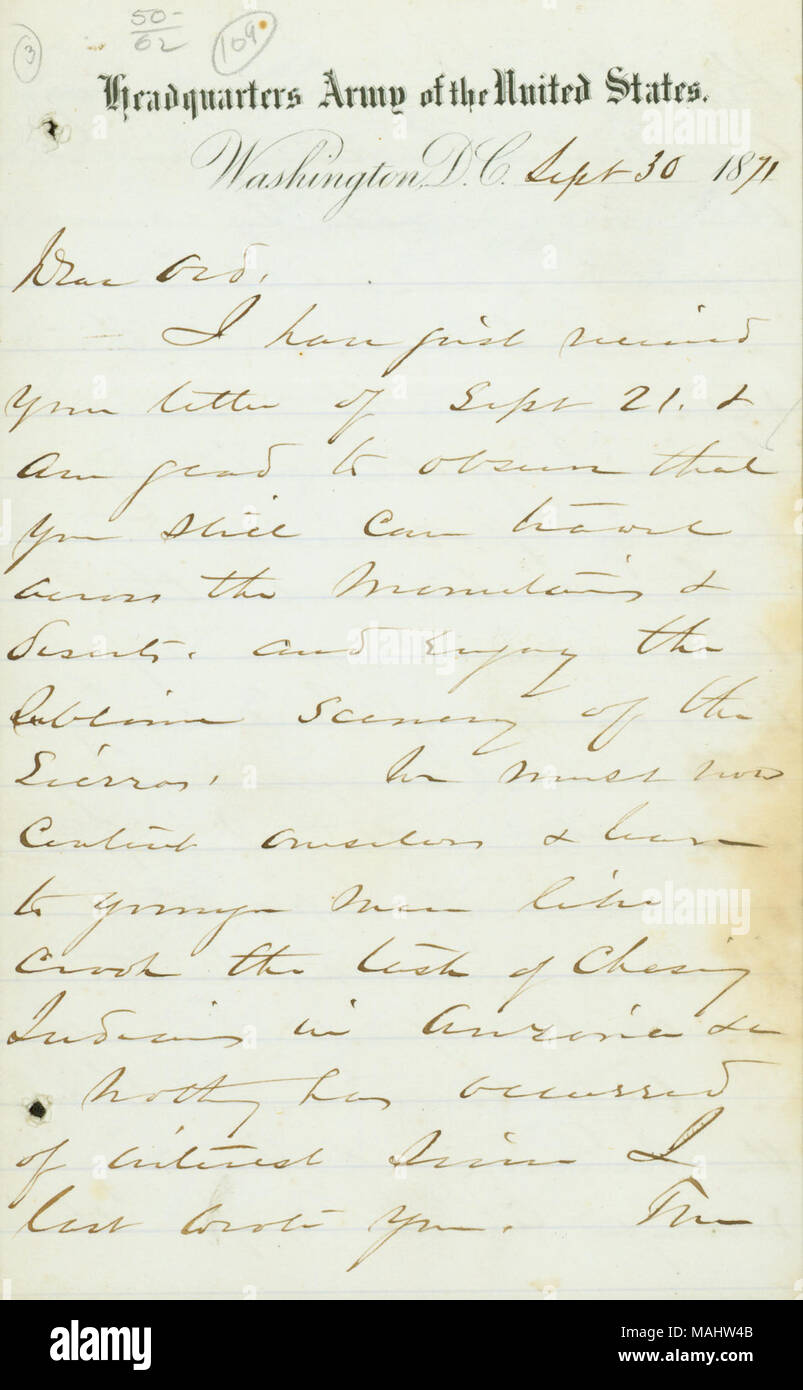 50-
62
3
109
Headquarters Army of the United States.
Washington, D.C. Sept 30 1871
Dear Ord,
I have just received
your letter of Sept 21. &
am glad to observe that
you still can travel
across the Mountains &
deserts. and enjoy the
sublime scenery of the
Sierras. We must now
content ourselves & leave
to younger men like
Crook the task of chasing
Indians in Arizona &c
Nothing has occurred
of interest since I
last wrote you. The
alamy
Image ID: MAHW4B
www.alamy.com